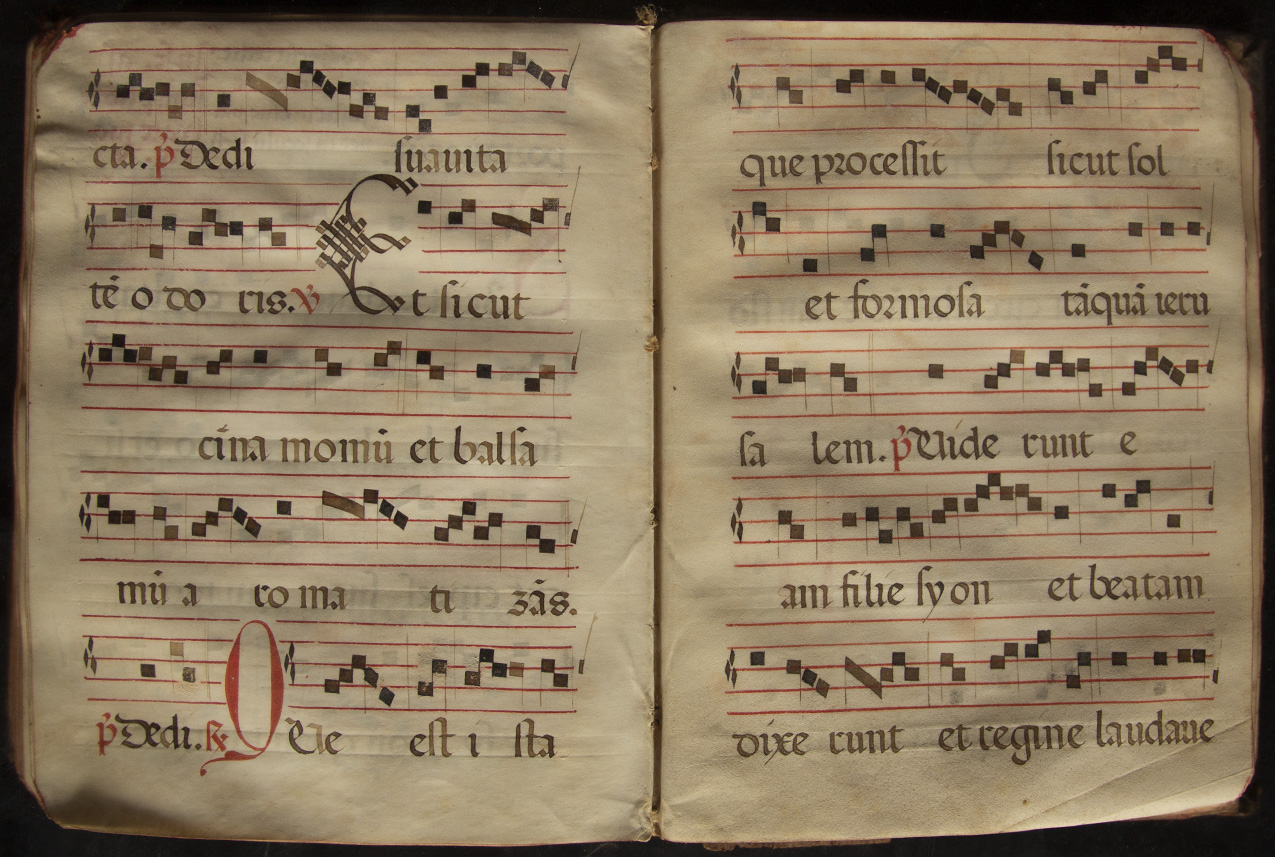 cta. p̃ Dedi suauita
tē o do ris. ℣ Et sicut
cina momū et balsa
mū a ro ma ti zās.
p̃ Dedi. ℟ QUe est i sta
que processit sicut sol
et formosa tāquā ieru
sa lem. p̃ Uide runt e
am filie syon et beatam
dixe runt et regine laudaue